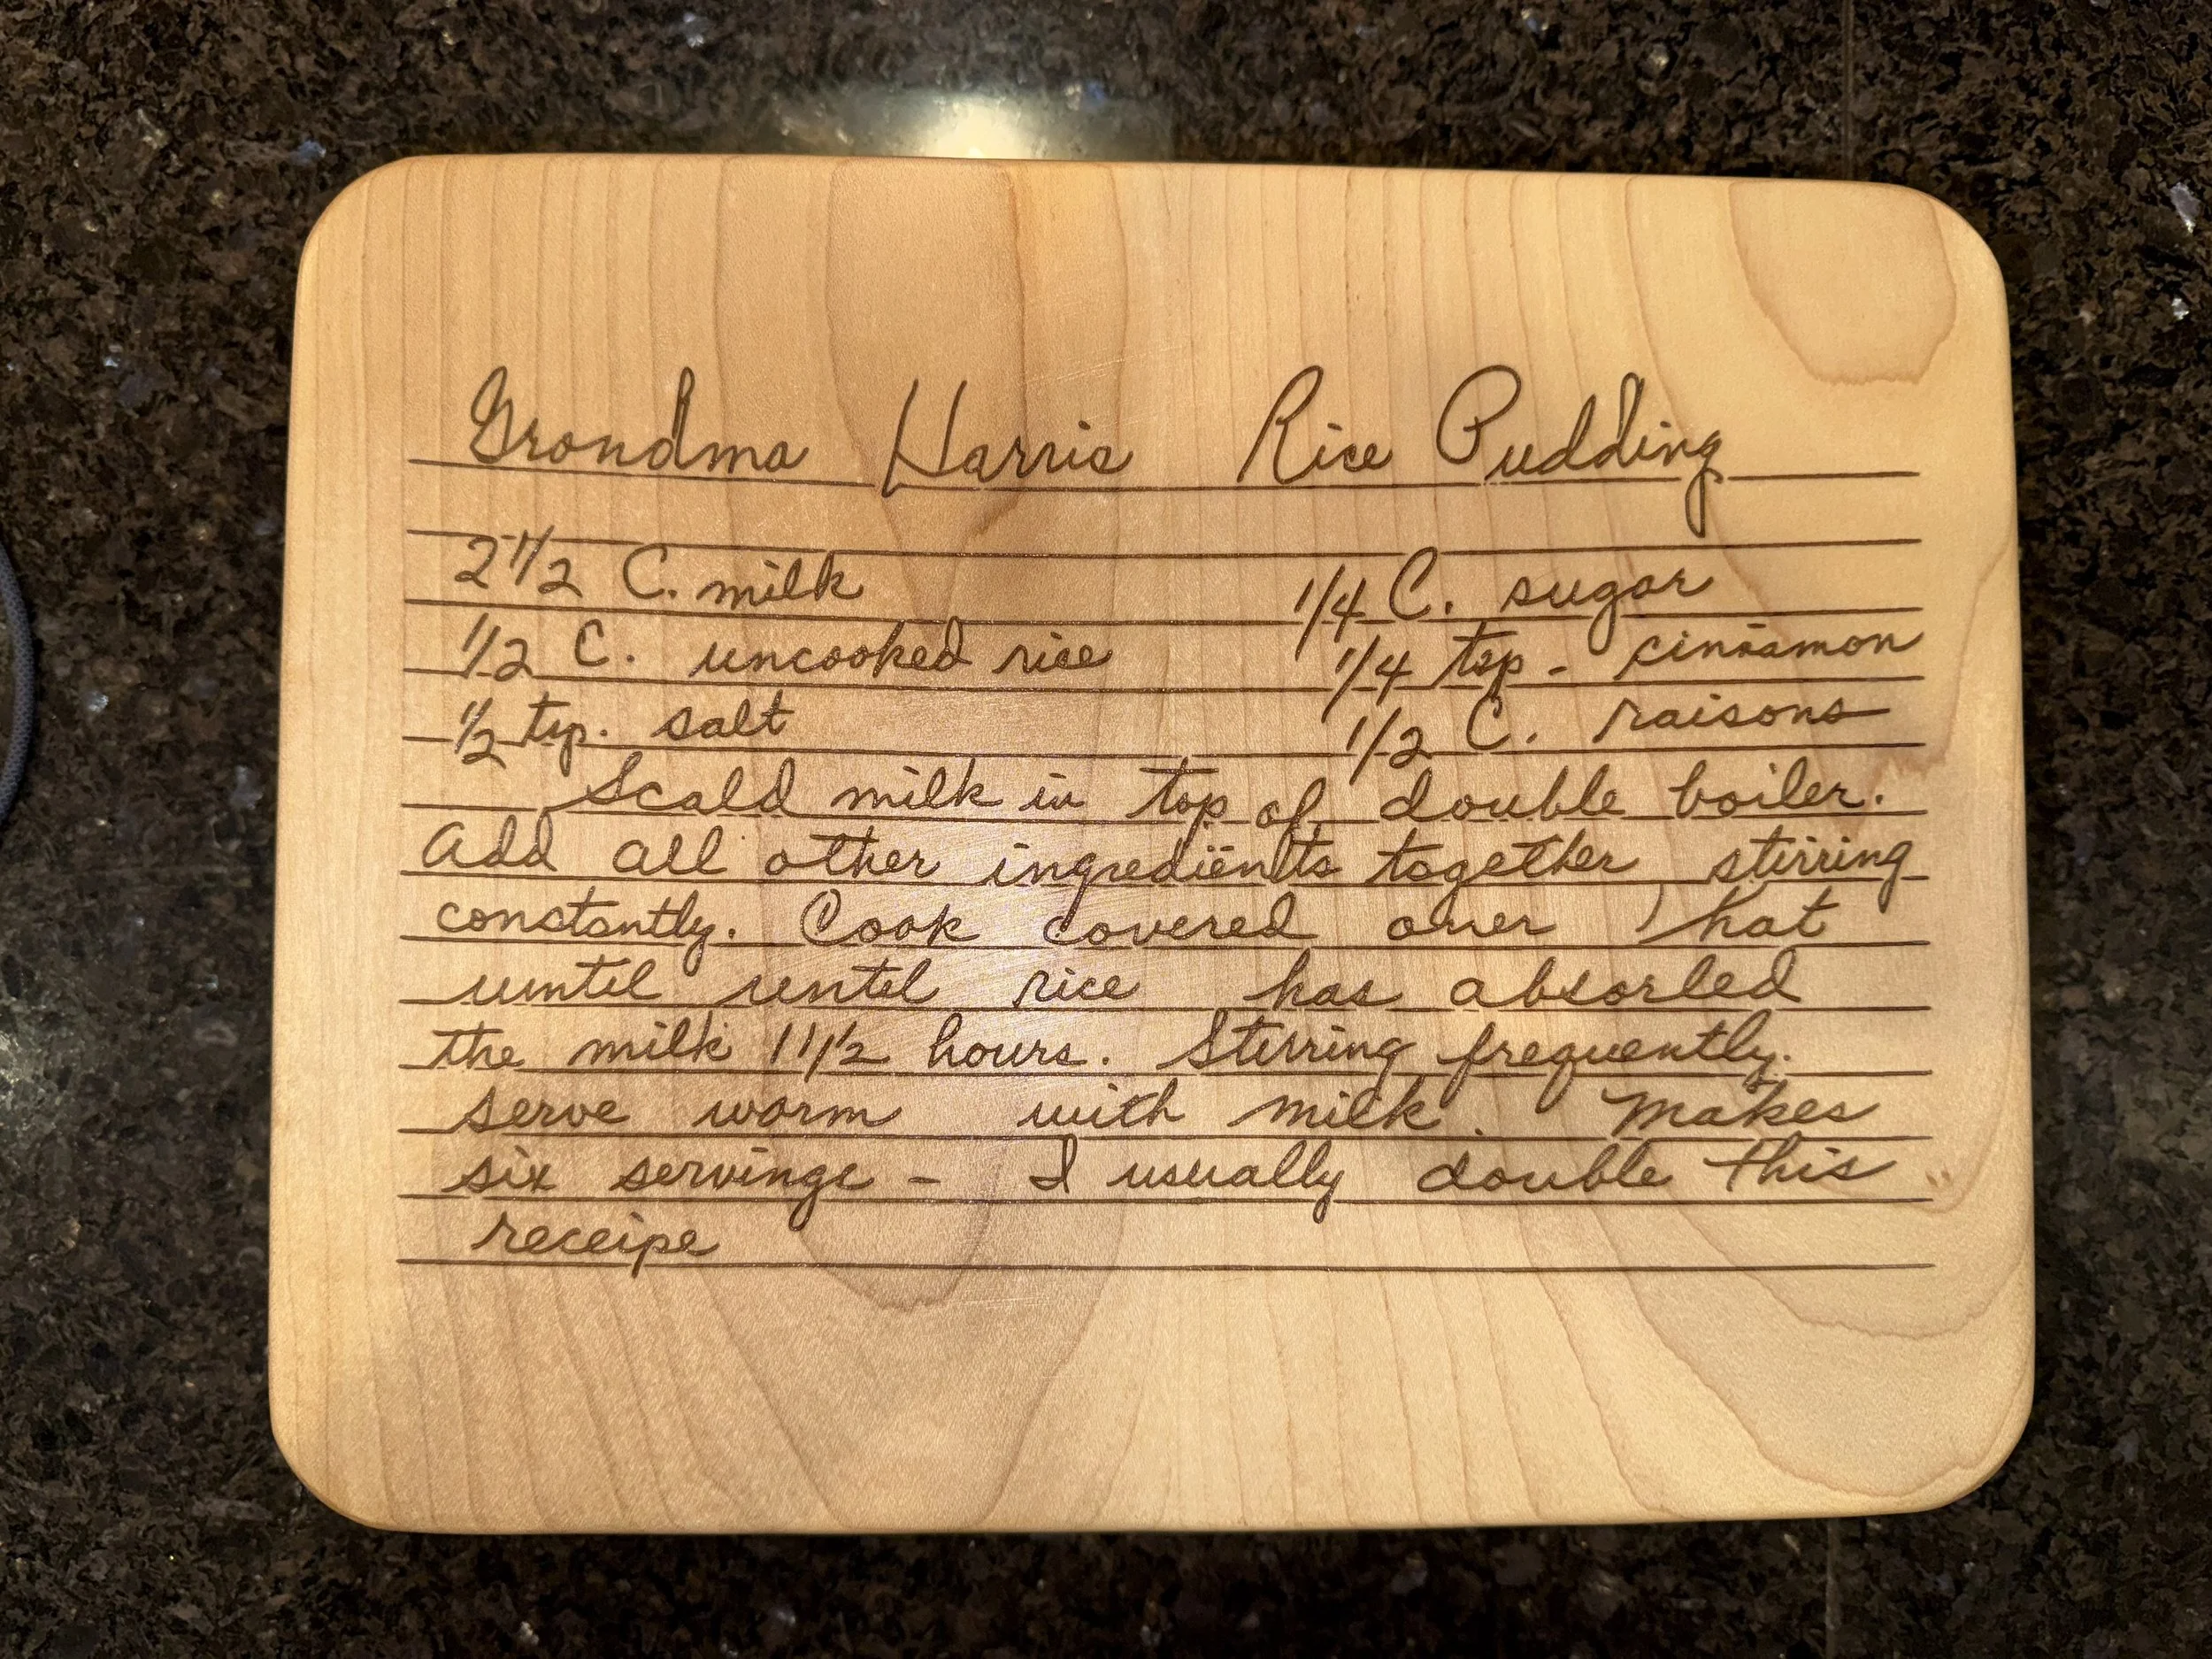 Grandma Harris Rice Pudding
2 1/2 C. milk 1/4 C. sugar
1/2 C. uncooked rice 1/4 tsp - cinnamon
1/2 tsp. salt 1/2 C. raisons
Scald milk in top of double boiler.
Add all other ingredients together stirring
constantly. Cook covered over hot
until until rice has absorbed
the milk 1 1/2 hours. Stirring frequently.
serve warm with milk. Makes
six servings - I usually double this
receipe